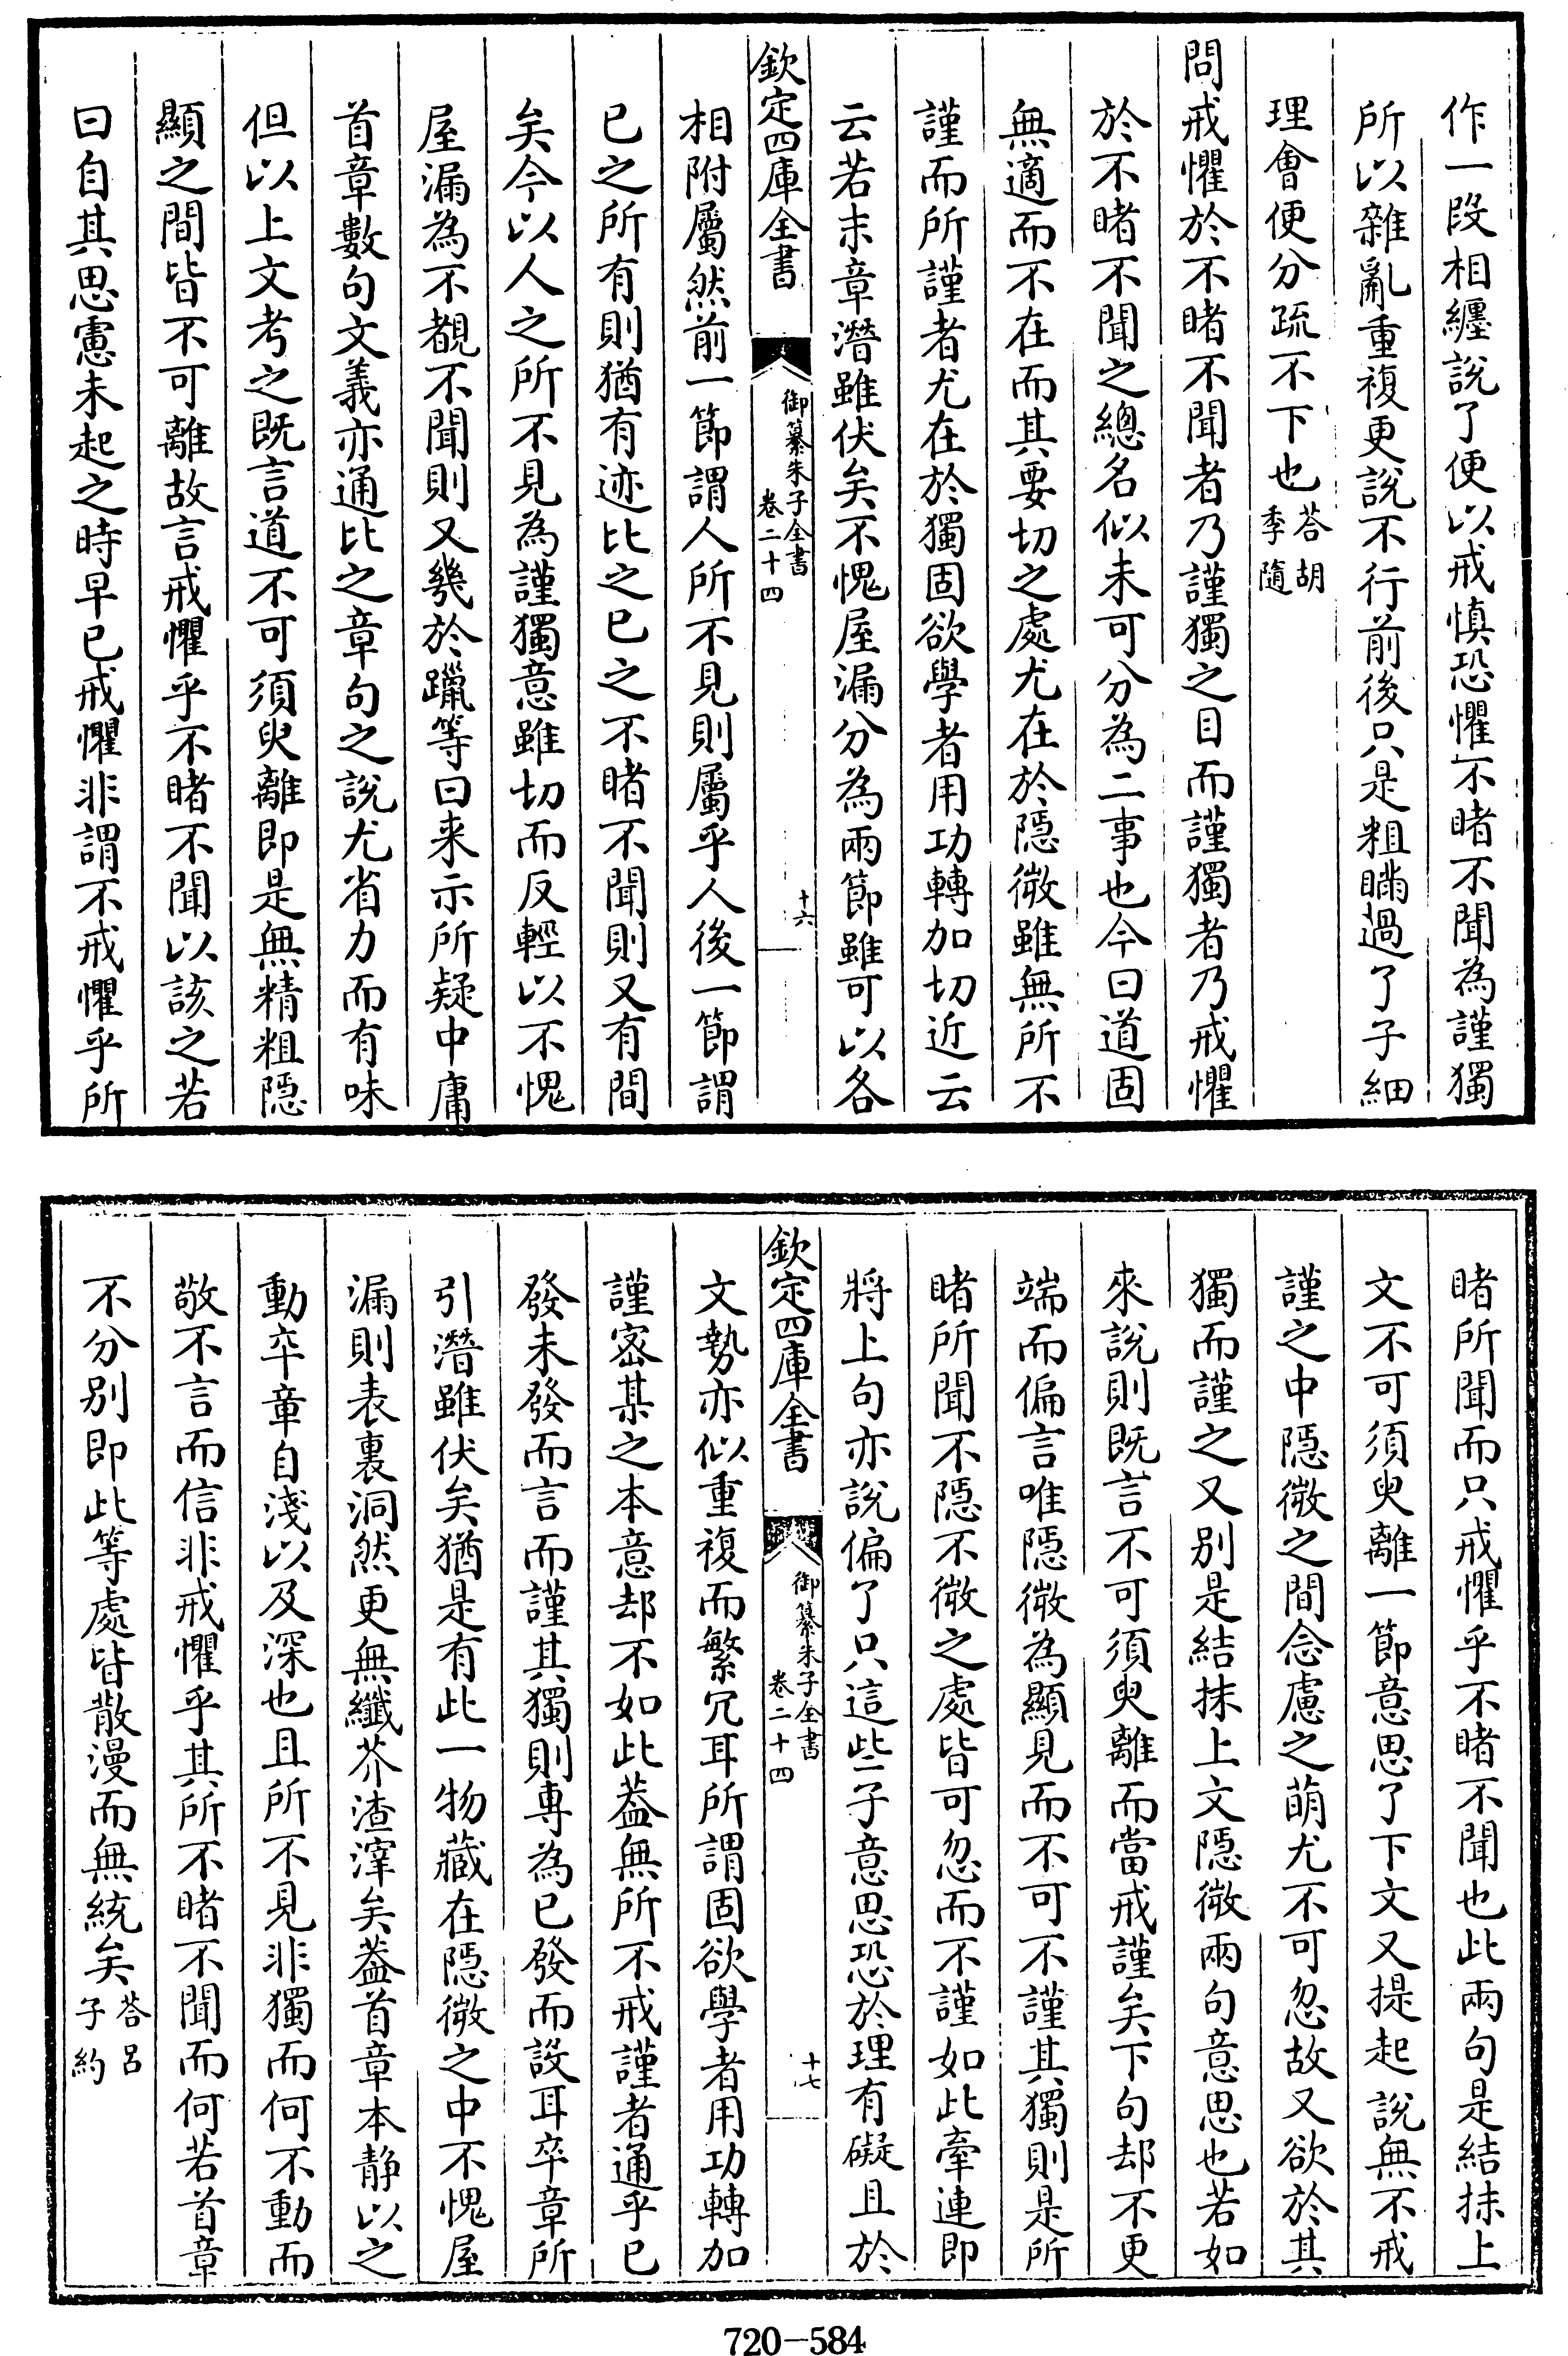 作一段相纏說了便以戒慎恐懼不睹不聞為謹獨
所以雜亂重複更說不行前後只是粗瞞過了子細
理會便分疏不下也答胡季隨
問戒懼於不睹不聞者乃謹獨之目而謹獨者乃戒懼
於不睹不聞之總名似未可分為二事也今曰道固
無適而不在而其要切之處尤在於隱微雖無所不
謹而所謹者尤在於獨固欲學者用功轉加切近云
云若末章潛雖伏矣不愧屋漏分為兩節雖可以各
欽定四庫全書
御纂朱子全書
卷二十四
十六
相附屬然前一節謂人所不見則屬乎人後一節謂
已之所有則猶有迹比之已之不睹不聞則又有間
矣今以人之所不見為謹獨意雖切而反輕以不愧
屋漏為不覩不聞則又幾於躐等曰来示所疑中庸
首章數句文義亦通比之章句之說尤省力而有味
但以上文考之既言道不可須臾離即是無精粗隱
顯之間皆不可離故言戒懼乎不睹不聞以該之若
曰自其思慮未起之時早已戒懼非謂不戒懼乎所
睹所聞而只戒懼乎不睹不聞也此兩句是結抹上
文不可須臾離一節意思了下文又提起說無不戒
謹之中隱微之間念慮之萌尤不可忽故又欲於其
獨而謹之又别是結抹上文隱微兩句意思也若如
來說則既言不可須臾離而當戒謹矣下句却不更
端而偏言唯隱微為顯見而不可不謹其獨則是所
睹所聞不隱不微之處皆可忽而不謹如此牽連即
將上句亦說偏了只這些子意思恐於理有礙且於
欽定四庫全書
御纂朱子全書
卷二十四
十七
文勢亦似重複而繁冗耳所謂固欲學者用功轉加
謹密某之本意却不如此葢無所不戒謹者通乎已
發未發而言而謹其獨則專為已發而設耳卒章所
引潛雖伏矣猶是有此一物藏在隱微之中不愧屋
漏則表裏洞然更無纖芥渣滓矣葢首章本静以之
動卒章自淺以及深也且所不見非獨而何不動而
敬不言而信非戒懼乎其所不睹不聞而何若首章
不分别即此等處皆散漫而無統矣答呂子約
720-584